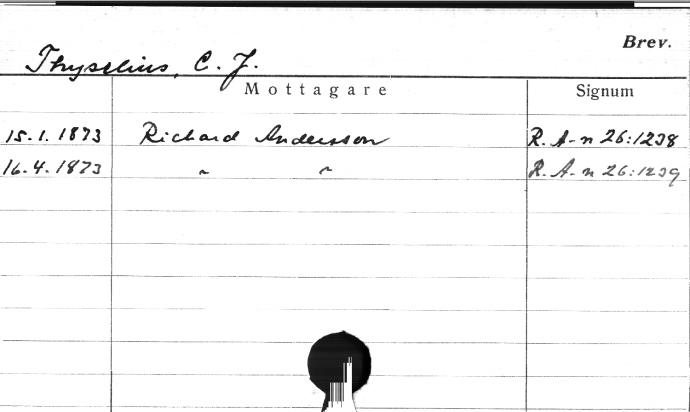 Brev.
Thyselius, C. J.
Mottagare Signum
15.1.1873 Richard Andersson R. A-n 26:1238
16.4.1873 " " R. A-n 26:1239